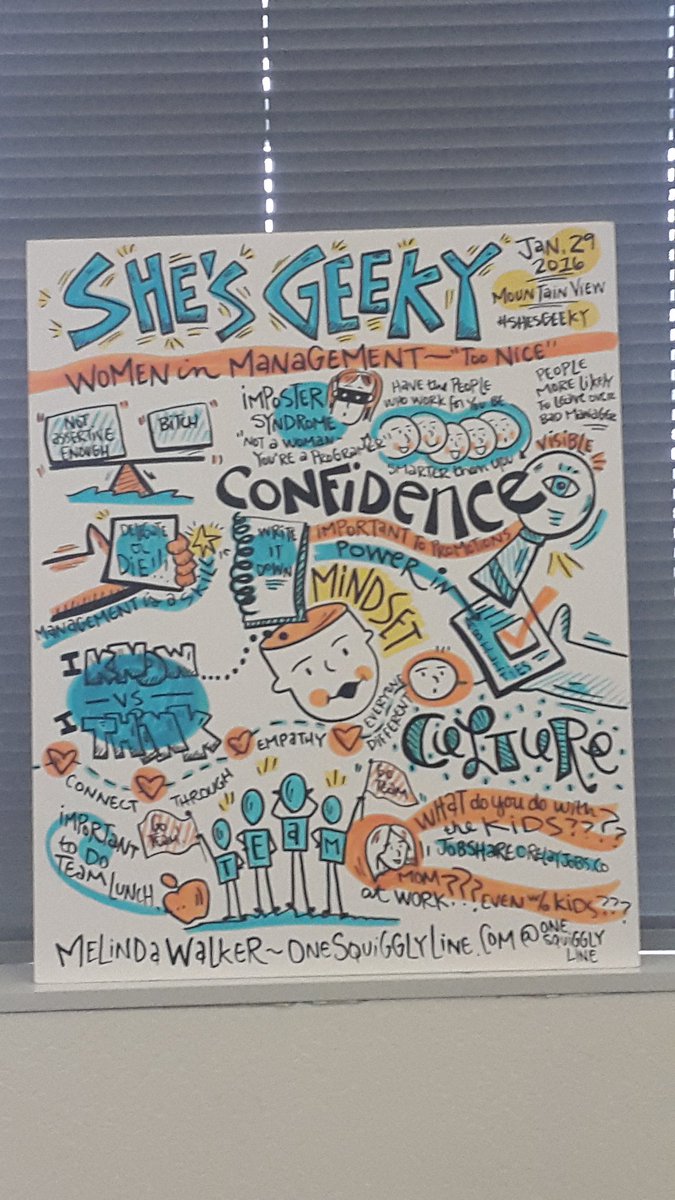 SHE'S GEEKY
JAN. 29
2016
MOUNTAIN VIEW
#SHESGEEKY
WOMEN in MANAGEMENT~"TOO NICE"
"NOT
ASSERTIVE
ENOUGH"
"BITCH"
IMPOSTER
SYNDROME
"NOT A WOMAN
YOU'RE A PROGRAMER"
HAVE the PEOPLE
WHO WORK for YOU BE
SMARTER than you
PEOPLE
MORE LIKELY
TO LEAVE OVER
BAD MANAGER
VISIBLE
CONFIDENCE
IMPORTANT TO PROMOTIONS
DELEGATE
or
DIE!!
MANAGEMENT is a SKILL
WRITE
IT
DOWN
POWER IN
MINDSET
I KNOW
- VS -
I THINK
EVERYONE
DIFFERENT
CULTURE
CONNECT THROUGH EMPATHY
IMPORTANT
to DO
TEAM LUNCH
GO
TEAM
TEAM
GO
TEAM
WHAT do you do with
the KIDS????
JOBSHARE@RELAYJOBS.CO
MOM???
at WORK... EVEN w/6 KIDS???
MELINDA WALKER~ONESQUIGGLYLINE.COM
@ONE
SQUIGGLY
LINE